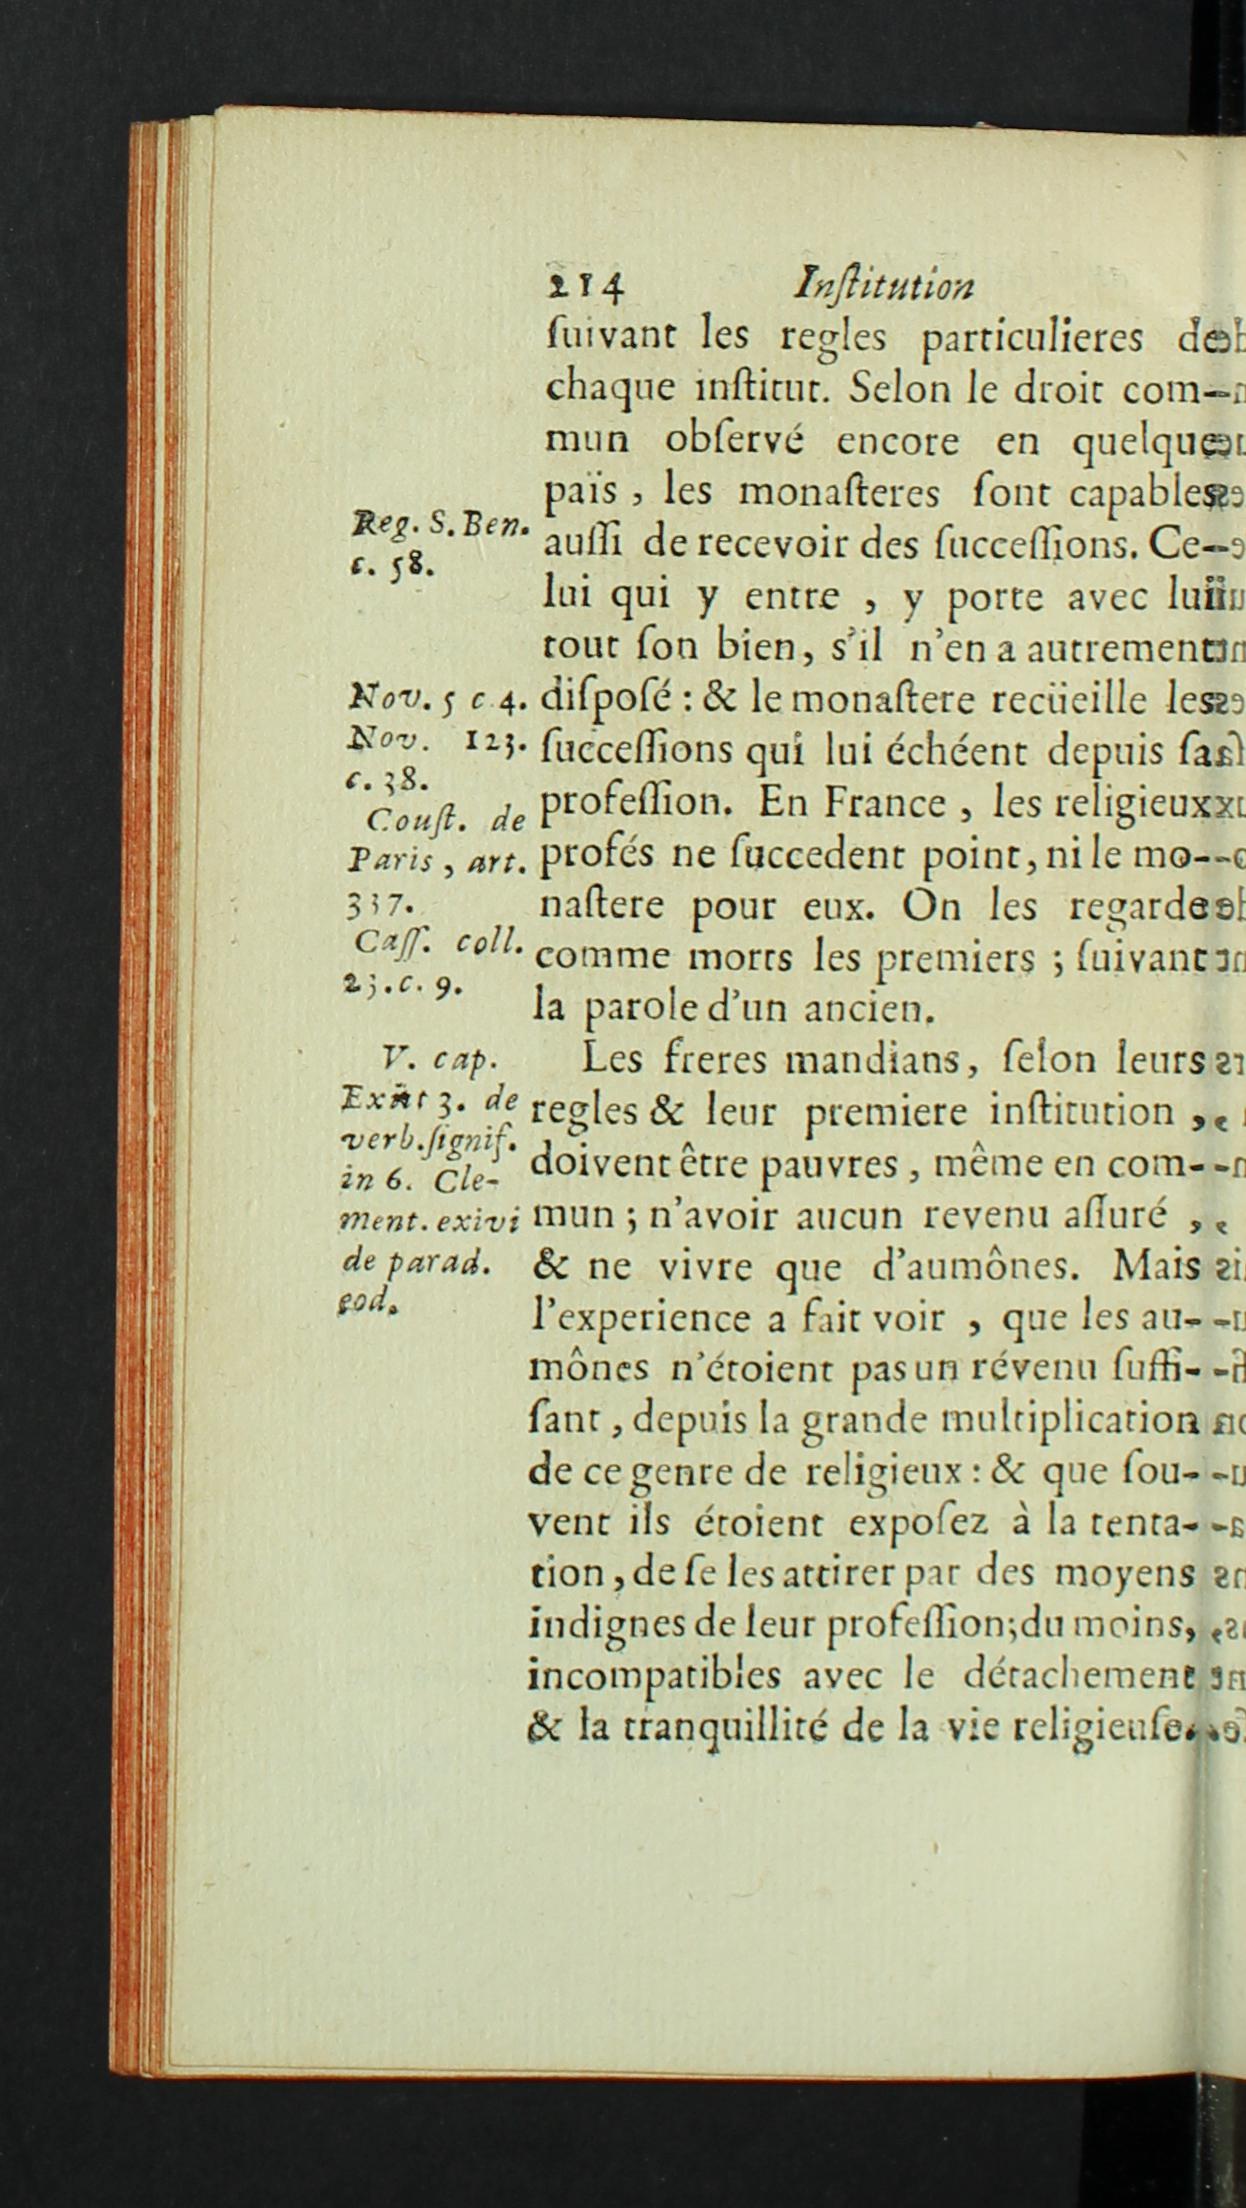 214 Inſtitution
ſuivant les regles particulieres de
chaque inſtitut. Selon le droit com-
mun obſervé encore en quelque
païs, les monaſteres ſont capables
auſſi de recevoir des ſucceſſions. Ce-
lui qui y entre, y porte avec lui
tout ſon bien, s'il n'en a autrement
diſpoſé: & le monaſtere recüeille les
ſucceſſions qui lui échéent depuis ſa
profeſſion. En France, les religieux
profés ne ſuccedent point, ni le mo-
naſtere pour eux. On les regarde
comme morts les premiers; ſuivant
la parole d'un ancien.
Les freres mandians, ſelon leurs
regles & leur premiere inſtitution,
doivent être pauvres, même en com-
mun; n'avoir aucun revenu aſſuré,
& ne vivre que d'aumônes. Mais
l'experience a fait voir, que les au-
mônes n'étoient pas un révenu ſuffi-
ſant, depuis la grande multiplication
de ce genre de religieux: & que ſou-
vent ils étoient expoſez à la tenta-
tion, de ſe les attirer par des moyens
indignes de leur profeſſion; du moins,
incompatibles avec le détachement
& la tranquillité de la vie religieuſe.
Reg. S. Ben.
c. 58.
Nov. 5 c. 4.
Nov. 123.
c. 38.
Couſt. de
Paris, art.
337.
Caſſ. coll.
23. c. 9.
V. cap.
Exiit 3. de
verb. ſignif.
in 6. Cle-
ment. exivi
de parad.
eod.